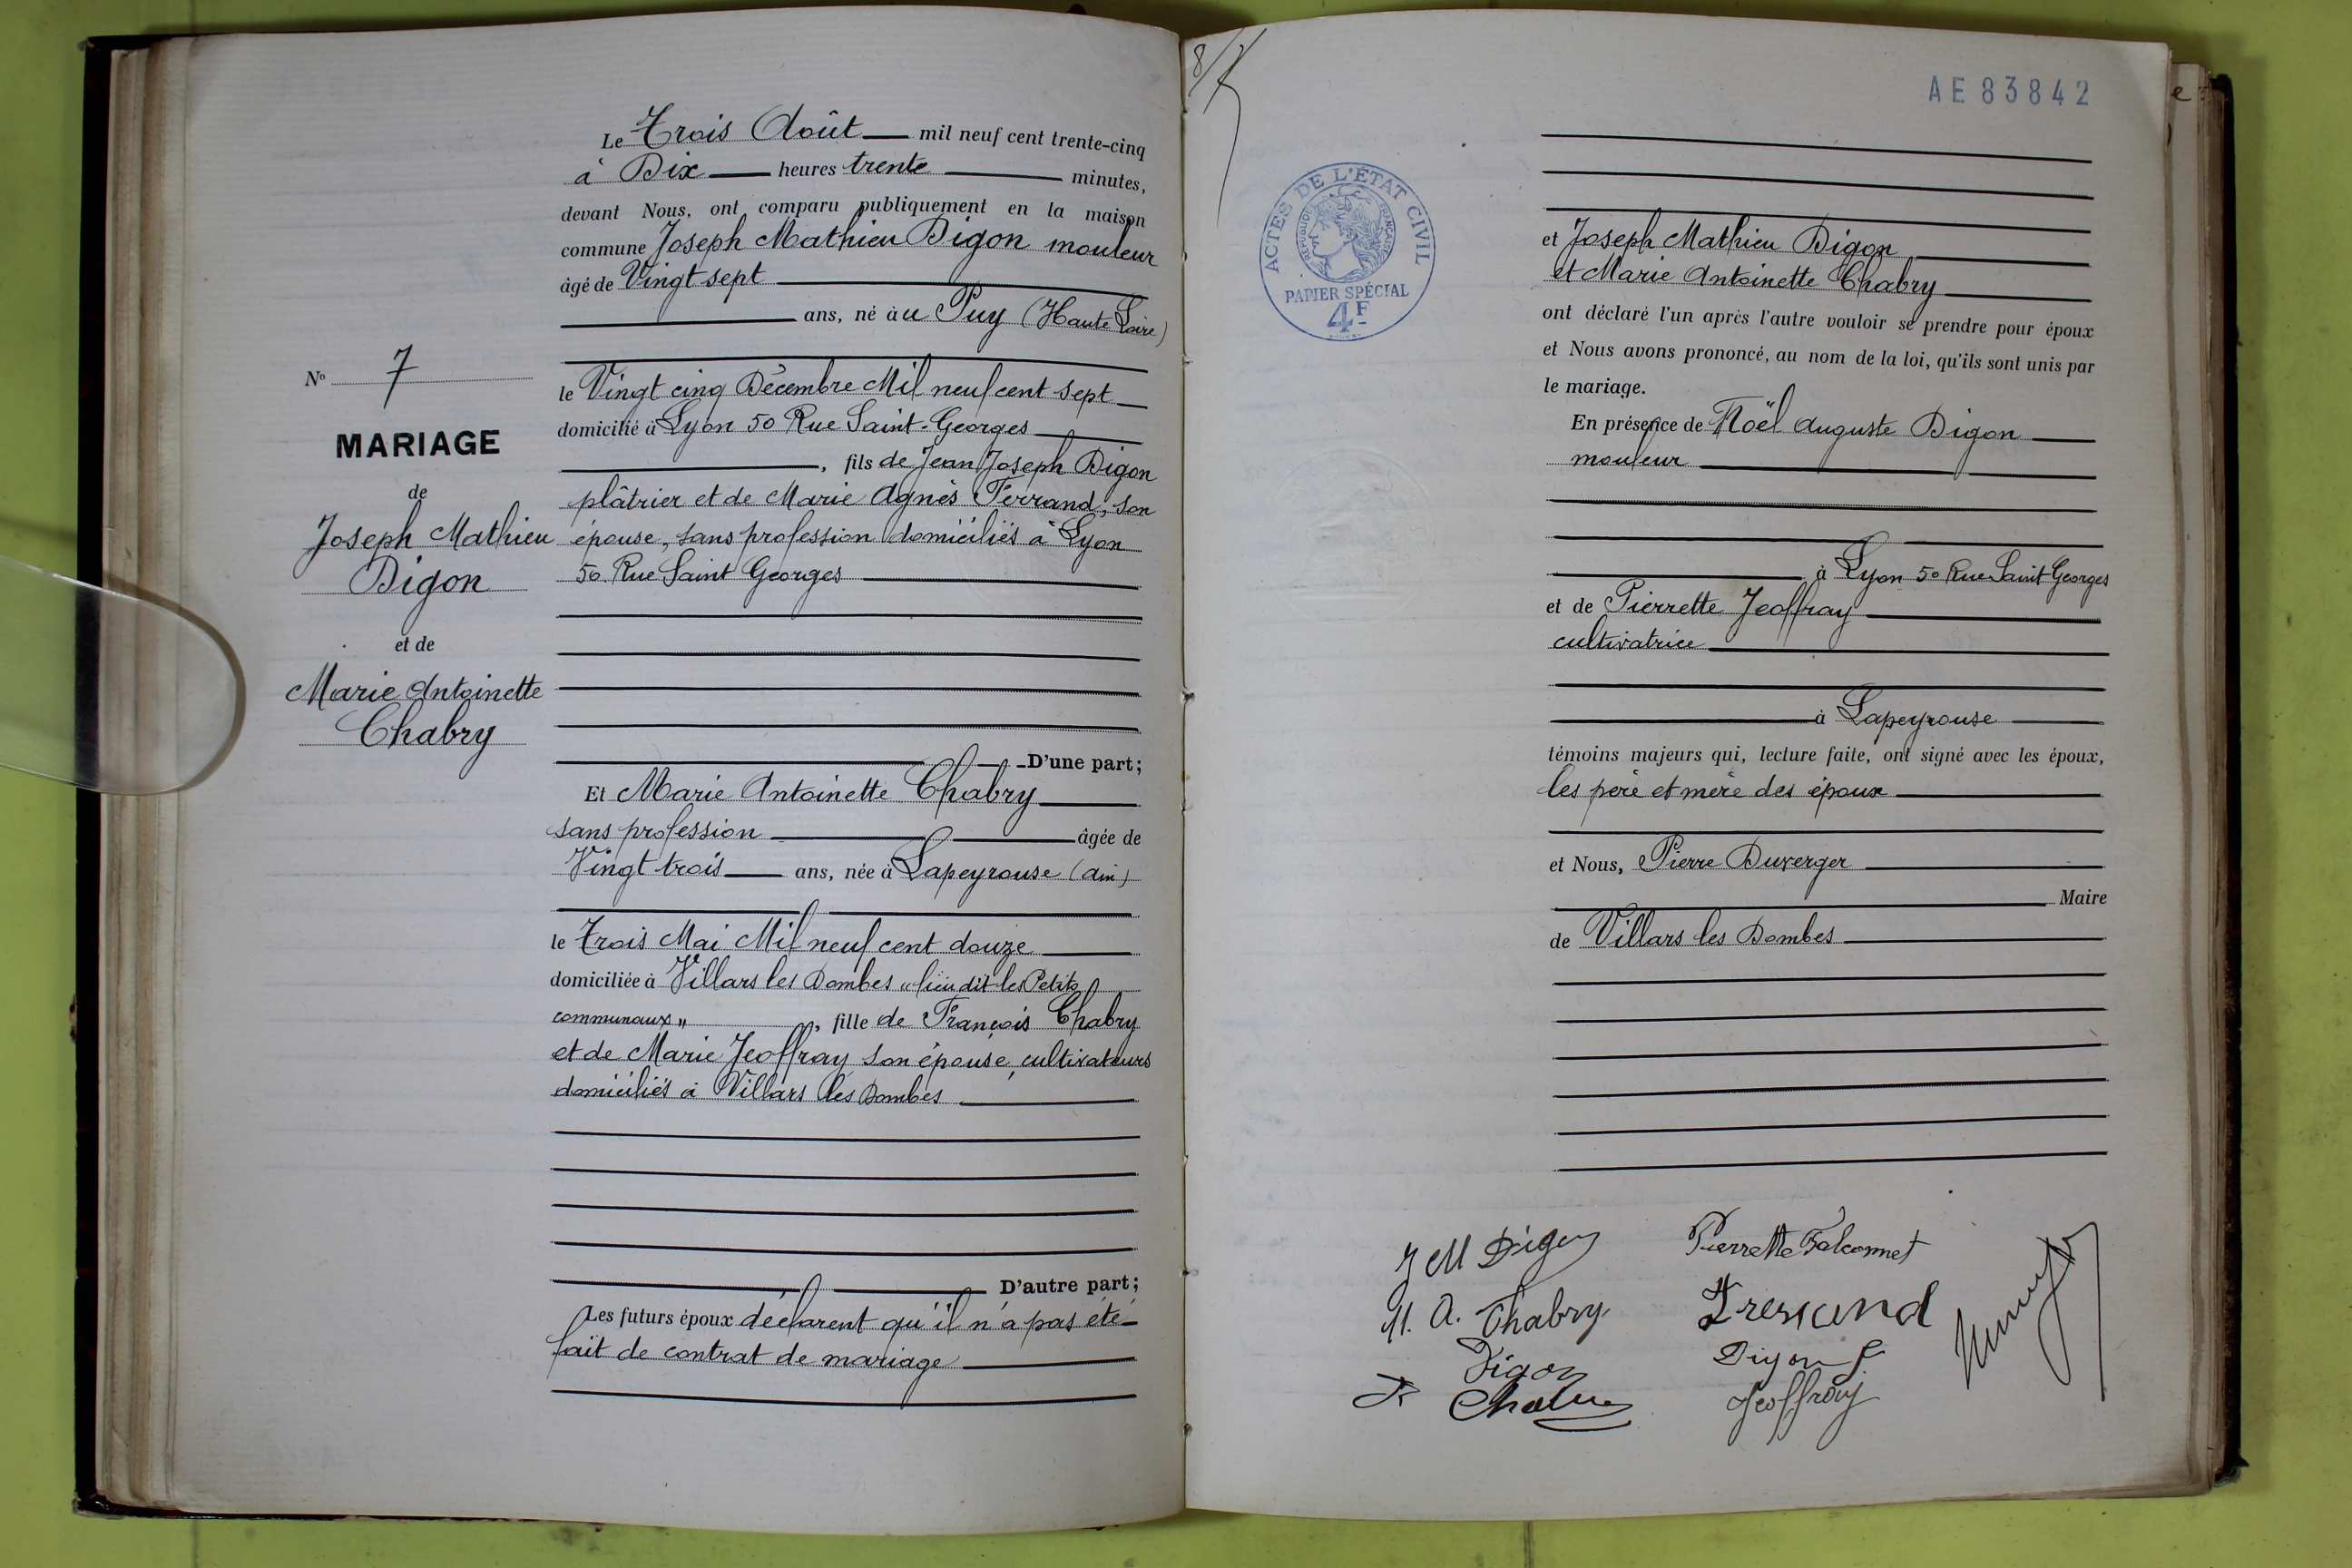 Le Trois Août mil neuf cent trente-cinq
à Dix heures trente minutes,
devant Nous, ont comparu publiquement en la maison
commune Joseph Mathieu Digon mouleur
âgé de Vingt sept
ans, né à u Puy (Haute Loire)
le Vingt cinq Décembre Mil neuf cent sept
domicilié à Lyon 50 Rue Saint-Georges
, fils de Jean Joseph Digon
plâtrier et de Marie Agnès Ferrand, son
épouse, sans profession domiciliés à Lyon
50 Rue Saint Georges
D'une part;
Et Marie Antoinette Chabry
sans profession âgée de
Vingt trois ans, née à Lapeyrouse (ain)
le Trois Mai Mil neuf cent douze
domiciliée à Villars les Dombes "lieu dit les Petits
communaux", fille de François Chabry
et de Marie Jeoffray son épouse, cultivateurs
domiciliés à Villars les Dombes
D'autre part;
Les futurs époux déclarent qu'il n'a pas été
fait de contrat de mariage
N° 7
MARIAGE
de
Joseph Mathieu
Digon
et de
Marie Antoinette
Chabry
8/
AE 83842
ACTES DE L'ÉTAT CIVIL
RÉPUBLIQUE FRANÇAISE
PAPIER SPÉCIAL
4F
et Joseph Mathieu Digon
et Marie Antoinette Chabry
ont déclaré l'un après l'autre vouloir se prendre pour époux
et Nous avons prononcé, au nom de la loi, qu'ils sont unis par
le mariage.
En présence de Noël Auguste Digon
mouleur
à Lyon 50 Rue Saint Georges
et de Pierrette Jeoffray
cultivatrice
à Lapeyrouse
témoins majeurs qui, lecture faite, ont signé avec les époux,
les père et mère des époux
et Nous, Pierre Duverger
Maire
de Villars les Dombes
J M Digon
Pierrette Falconnet
M. A. Chabry
Digon
Digon J.
Jeoffray